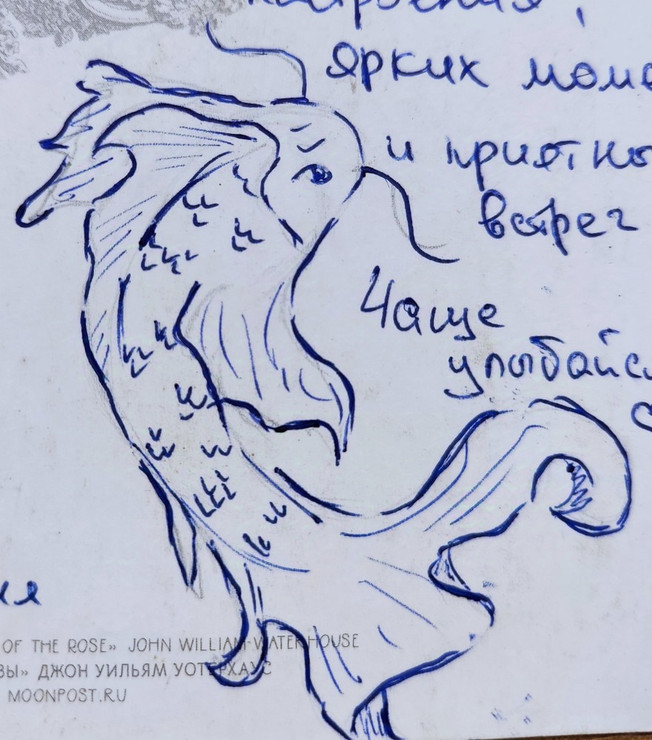 настроения,
ярких моме
и приятны
встреч
Чаще
улыбайс
OF THE ROSE» JOHN WILLIAM WATERHOUSE
ЗЫ» ДЖОН УИЛЬЯМ УОТЕРХАУС
MOONPOST.RU